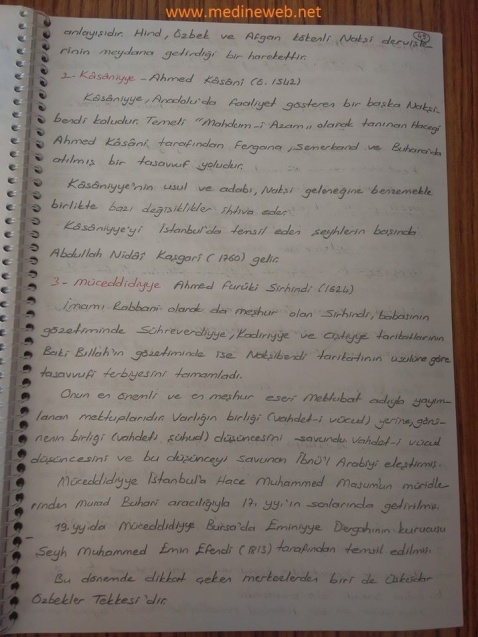 www.medineweb.net
anlayışıdır. Hind, Özbek ve Afgan kökenli Nakşi dervişle-
rinin meydana getirdiği bir harekettir.
2- Kâsâniyye - Ahmed Kâsânî (ö. 1542)
Kâsâniyye, Anadolu'da faaliyet gösteren bir başka Nakşi-
bendi koludur. Temeli "Mahdum-i Azam" olarak tanınan Hacegi
Ahmed Kâsânî, tarafından Fergana, Semerkand ve Buhara'da
atılmış bir tasavvuf yoludur.
Kâsâniyye'nin usul ve adabı, Nakşi geleneğine benzemekle
birlikte bazı değişiklikler ihtiva eder.
Kâsâniyye'yi İstanbul'da temsil eden şeyhlerin başında
Abdullah Nidâî Kaşgari (1760) gelir.
3- Müceddidiyye Ahmed Faruki Sirhindi (1624)
İmamı Rabbani olarak da meşhur olan Sirhindi, babasının
gözetiminde Sühreverdiyye, Kadiriyye ve Çiştiyye tarikatlarının
Baki Billah'ın gözetiminde ise Nakşibendi tarikatının usulüne göre
tasavvufi terbiyesini tamamladı.
Onun en önemli ve en meşhur eseri Mektubat adıyla yayım-
lanan mektuplarıdır. Varlığın birliği (vahdet-i vücud) yerine, görü-
nenin birliği (vahdeti şühud) düşüncesini savundu. Vahdet-i vücud
düşüncesini ve bu düşünceyi savunan İbnü'l Arabiyi eleştirmiş.
Müceddidiyye İstanbul'a Hace Muhammed Masum'un müridle-
rinden Murad Buhari aracılığıyla 17. yy.'ın sonlarında getirilmiş.
19. yy'da Müceddidiyye Bursa'da Eminiyye Dergahının kurucusu
Şeyh Muhammed Emin Efendi (1813) tarafından temsil edilmiş.
Bu dönemde dikkat çeken merkezlerden biri de Üsküdar
Özbekler Tekkesi'dir.